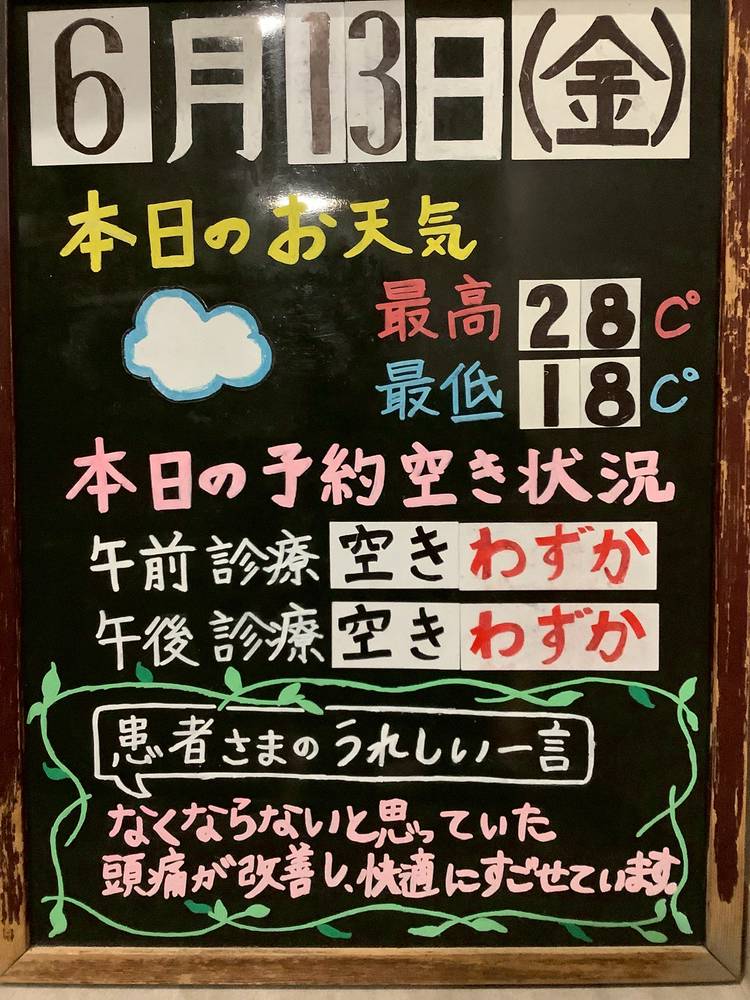 6月13日(金)
本日のお天気
最高 28 C°
最低 18 C°
本日の予約空き状況
午前診療 空きわずか
午後診療 空きわずか
患者さまのうれしい一言
なくならないと思っていた
頭痛が改善し、快適にすごせています。